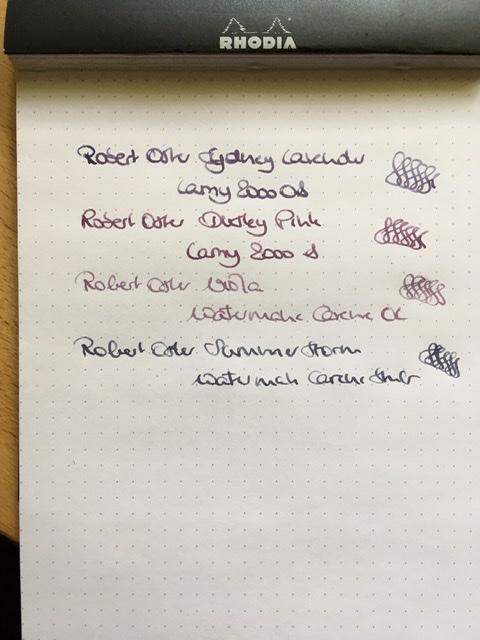 RHODIA
Robert Oster Sydney Lavender
Lamy 2000 OB
Robert Oster Dusky Pink
Lamy 2000
Robert Oster Viola
Waterman Carene
Robert Oster Summer Storm
Waterman Carene